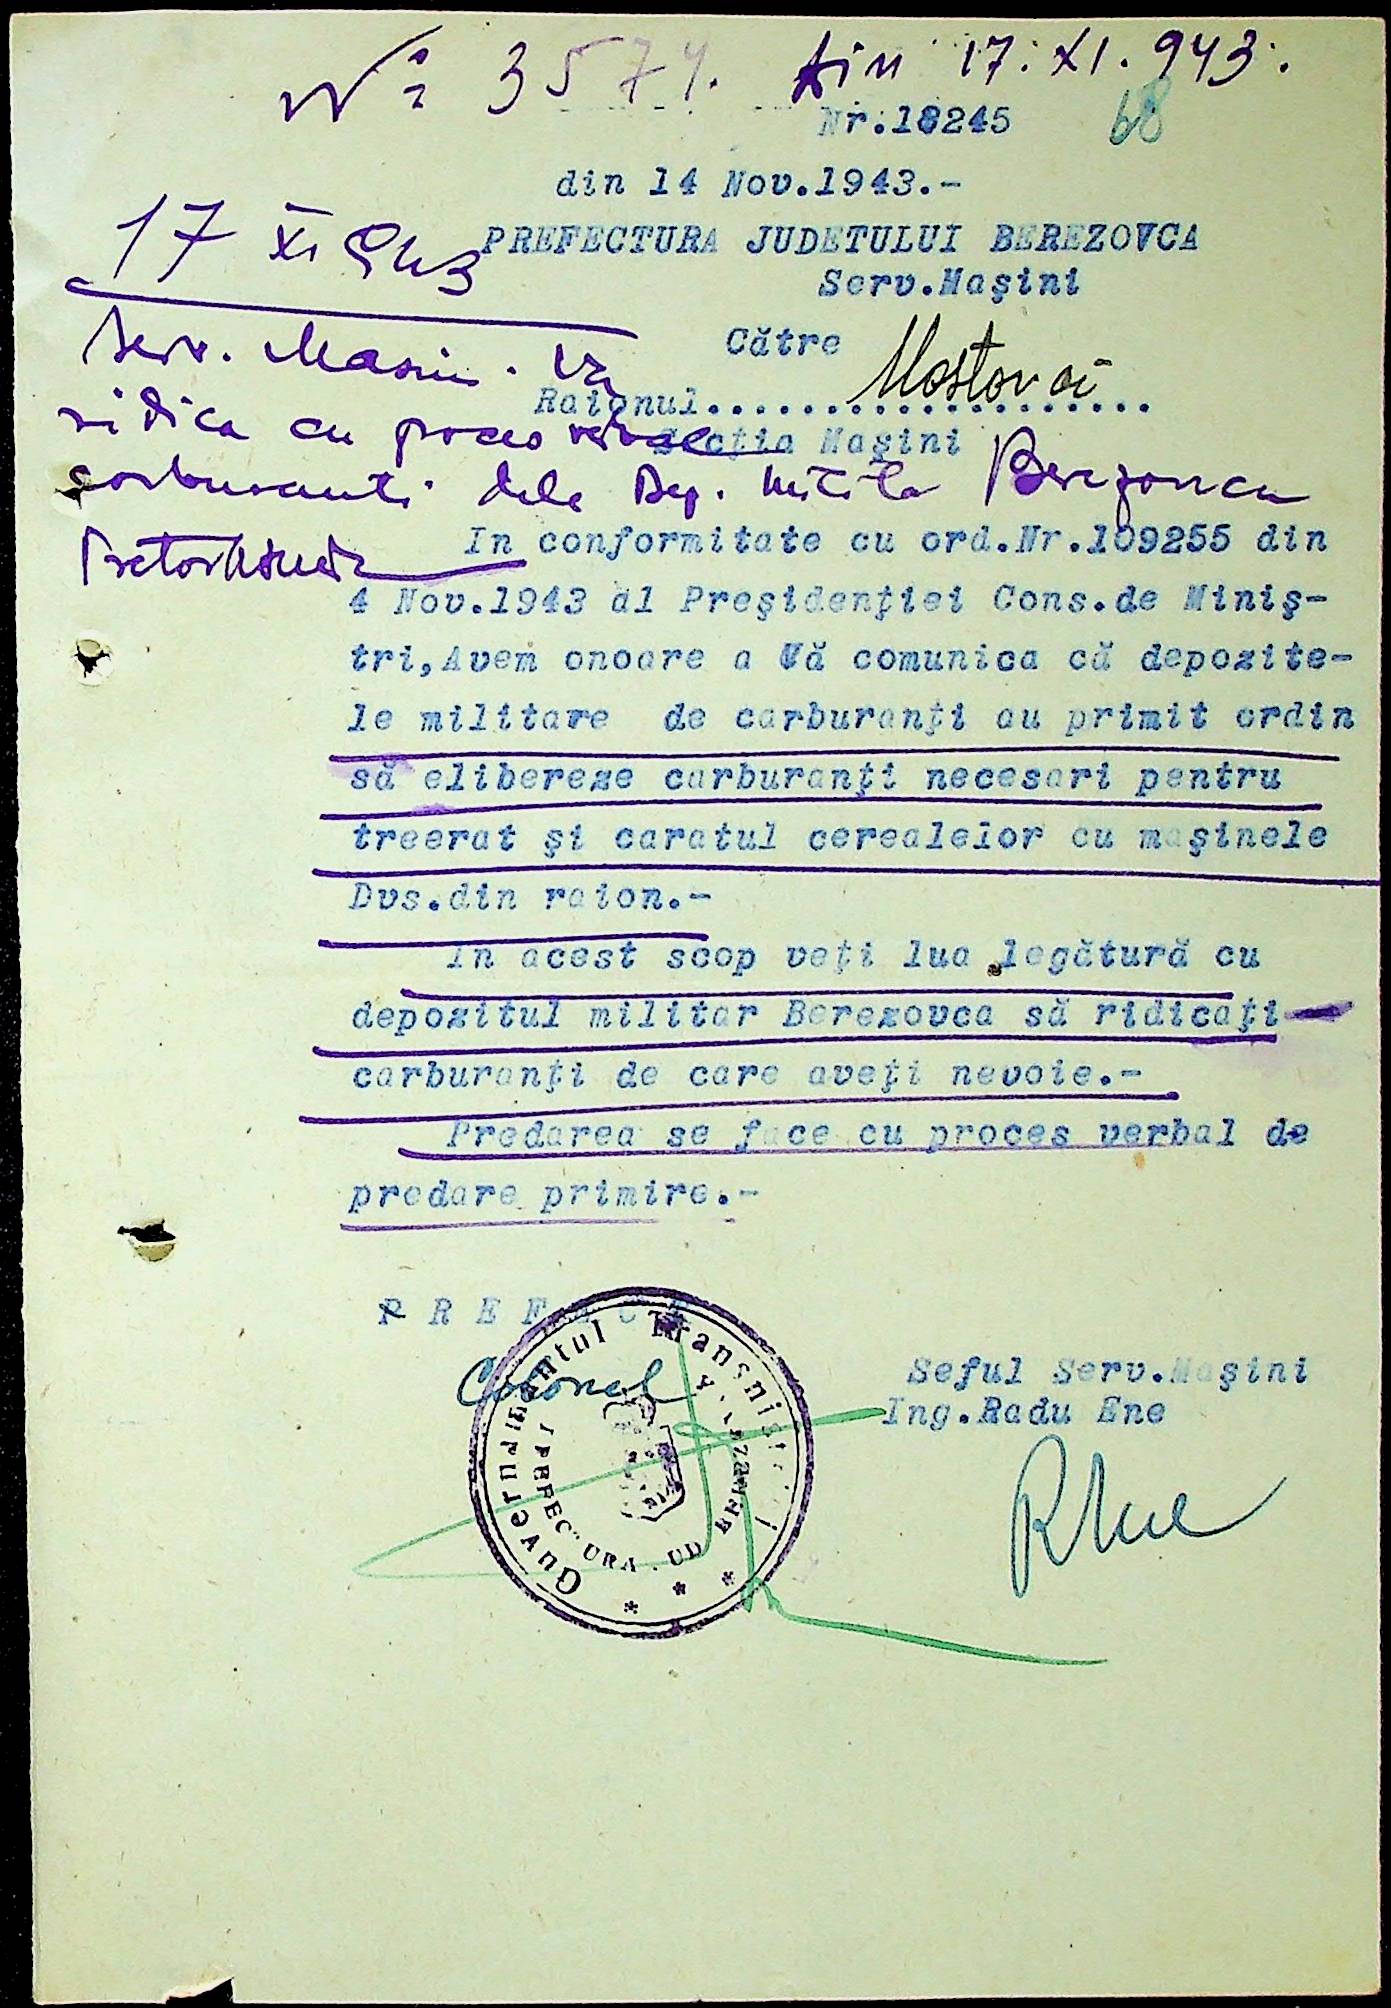 Nº 3574. din 17.XI.943.
Nr.18245
68
din 14 Nov.1943.-
PREFECTURA JUDETULUI BEREZOVCA
Serv.Maşini
17 XI 943
Către
Serv. Masini. Va
Raionul.................... Mostovoi
ridica cu proces verbal
Secţia Maşini
carburanti dela Dep. Berezovca
In conformitate cu ord.Nr.109255 din
4 Nov.1943 al Preşidenţiei Cons.de Miniş-
tri,Avem onoare a Vă comunica că depozite-
le militare de carburanţi au primit ordin
să elibereze carburanţi necesari pentru
treerat şi caratul cerealelor cu maşinele
Dvs.din raion.-
In acest scop veţi lua legătură cu
depozitul militar Berezovca să ridicaţi
carburanţi de care aveţi nevoie.-
Predarea se face cu proces verbal de
predare primire.-
P R E F E C T
Colonel
Seful Serv.Maşini
Ing.Radu Ene
Guvernământul Transnistriei
PREFECTURA JUD